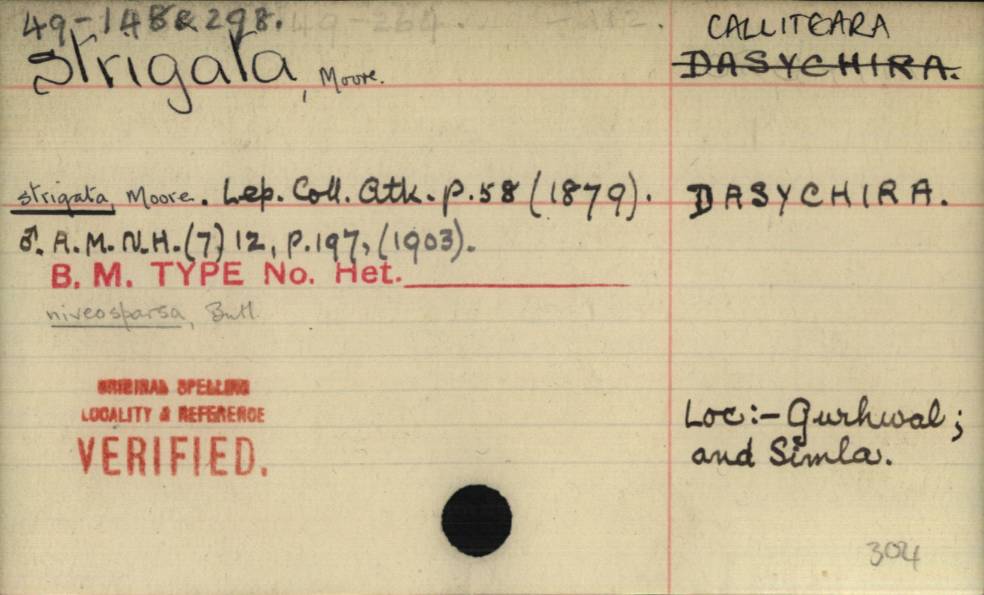 49-148&298.
CALLITEARA
strigata, Moore.
DASYCHIRA.
strigata, Moore. Lep. Coll. Atk. p.58 (1879). DASYCHIRA.
♂. A.M.N.H.(7) 12, p.197, (1903).
B. M. TYPE No. Het.
niveosparsa, Butl.
ORIGINAL SPELLING
LOCALITY & REFERENCE
VERIFIED.
Loc:- Gurhwal;
and Simla.
304